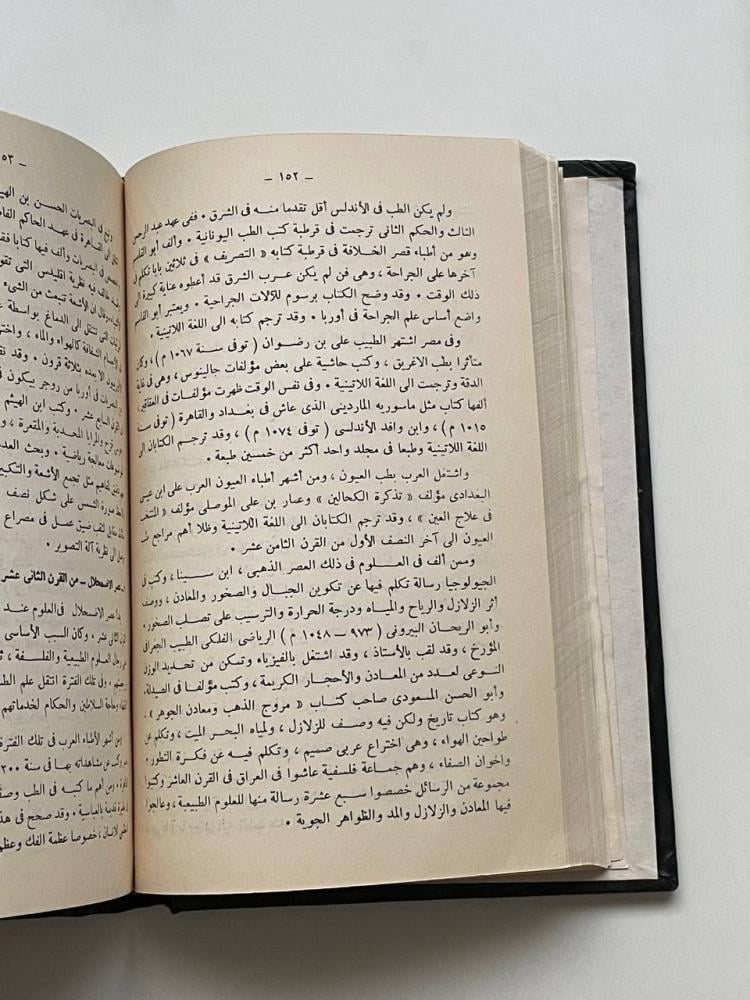 – ١٥٢ –
ولم يكن الطب فى الأندلس أقل تقدما منه فى الشرق • ففى عهد عبد الرحمن
الثالث والحكم الثانى ترجمت فى قرطبة كتب الطب اليونانية • وألف أبو القاسم
وهو من أطباء قصر الخلافة فى قرطبة كتابه « التصريف » فى ثلاثين بابا تكلم فى
آخرها على الجراحة ، وهى فن لم يكن عرب الشرق قد أعطوه عناية كبيرة الى
ذلك الوقت • وقد وضح الكتاب برسوم للآلات الجراحية • ويعتبر أبو القاسم
واضع أساس علم الجراحة فى أوربا • وقد ترجم كتابه الى اللغة اللاتينية •
وفى مصر اشتهر الطبيب على بن رضوان ( توفى سنة ١٠٦٧ م ) ، وكان
متأثرا بطب الاغريق ، وكتب حاشية على بعض مؤلفات جالينوس ، وهى فى غاية
الدقة وترجمت الى اللغة اللاتينية • وفى نفس الوقت ظهرت مؤلفات فى العقاقير
ألفها كتاب مثل ماسويه الماردينى الذى عاش فى بغداد والقاهرة ( توفى سنة
١٠١٥ م ) ، وابن وافد الأندلسى ( توفى ١٠٧٤ م ) ، وقد ترجم الكتابان الى
اللغة اللاتينية وطبعا فى مجلد واحد أكثر من خمسين طبعة •
واشتغل العرب بطب العيون ، ومن أشهر أطباء العيون العرب على ابن عيسى
البغدادى مؤلف « تذكرة الكحالين » وعمار بن على الموصلى مؤلف « المنتخب
فى علاج العين » ، وقد ترجم الكتابان الى اللغة اللاتينية وظلا أهم مراجع طب
العيون الى آخر النصف الأول من القرن الثامن عشر •
وممن ألف فى العلوم فى ذلك العصر الذهبى ، ابن سينا ، وكتب فى
الجيولوجيا رسالة تكلم فيها عن تكوين الجبال والصخور والمعادن ، ووصف
أثر الزلازل والرياح والمياه ودرجة الحرارة والترسيب على تصلب الصخور •
وأبو الريحان البيرونى ( ٩٧٣ – ١٠٤٨ م ) الرياضى الفلكى الطبيب الجغرافى
المؤرخ ، وقد لقب بالأستاذ ، وقد اشتغل بالفيزياء وتمكن من تحديد الوزن
النوعى لعدد من المعادن والأحجار الكريمة ، وكتب مؤلفا فى الصيدلة •
وأبو الحسن المسعودى صاحب كتاب « مروج الذهب ومعادن الجوهر » •
وهو كتاب تاريخ ولكن فيه وصف للزلازل ، ولمياه البحر الميت ، وتكلم عن
طواحين الهواء ، وهى اختراع عربى صميم ، وتكلم فيه عن فكرة التطور •
واخوان الصفاء ، وهم جماعة فلسفية عاشوا فى العراق فى القرن العاشر وكتبوا
مجموعة من الرسائل خصصوا سبع عشرة رسالة منها للعلوم الطبيعية ، وعالجوا
فيها المعادن والزلازل والمد والظواهر الجوية •
٥٣ –
ونبغ فى البصريات الحسن بن الهيثم
الى القاهرة فى عهد الحاكم الفاطمى
فى البصريات وألف فيها كتابا فقد
خالف فيه نظرية اقليدس التى تقول
وقال ان الأشعة تنبعث من الشىء
التى تنتقل الى الدماغ بواسطة
الشفافة كالهواء والماء ، واختر
ثلاثة قرون • وقد نقل
فى أوربا من روجر بيكون فى
القرن السابع عشر • وكتب ابن الهيثم
قزح والمرايا المحدبة والمقعرة ،
معالجة رياضية • وبحث العدسات
مثل تجمع الأشعة والتكبير
صورة الشمس على شكل نصف
ثقب ضيق عمل فى مصراع
الى نظرية آلة التصوير •
عصر الاضمحلال – من القرن الثانى عشر
عصر الاضمحلال فى العلوم عند
الثانى عشر • وكان السبب الأساسى
رجال العلوم الطبيعية والفلسفة ،
وفى تلك الفترة انتقل علم الطب
وحاجة السلاطين والحكام لخدماتهم
ومن أشهر الأطباء العرب فى تلك الفترة
وكتب عن مشاهداته بها فى سنة ٢٠٠
ومن أهم ما كتبه فى الطب وصف
قديمة بالعباسية • وقد صحح فى هذا
الانسان ، خصوصا عظمة الفك وعظم